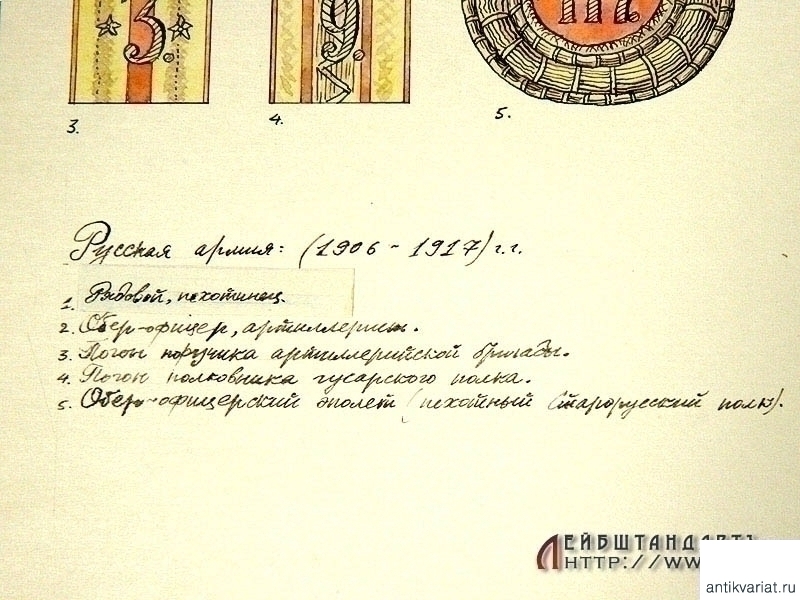 3. 9.
3. 4. 5.
Русская армия: (1906 - 1917) г.г.
1. Рядовой, пехотинец.
2. Обер-офицер, артиллерист.
3. Погон поручика артиллерийской бригады.
4. Погон полковника гусарского полка.
5. Обер-офицерский эполет (пехотный Старорусский полк).
ЛЕЙБШТАНДАРТЪ
HTTP://WW
antikvariat.ru